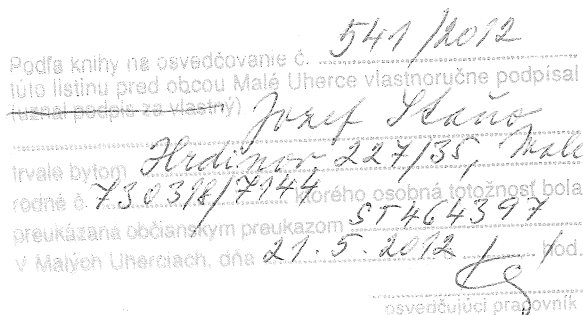 Podľa knihy na osvedčovanie č. 541/2012
túto listinu pred obcou Malé Uherce vlastnoručne podpísal
(uznal podpis za vlastný)
Jozef Staňo
trvale bytom Hrdinov 227/35, Malé
rodné č. 730318/7144 ktorého osobná totožnosť bola
preukázaná občianskym preukazom ST464397
V Malých Uherciach, dňa 21.5.2012 hod.
osvedčujúci pracovník